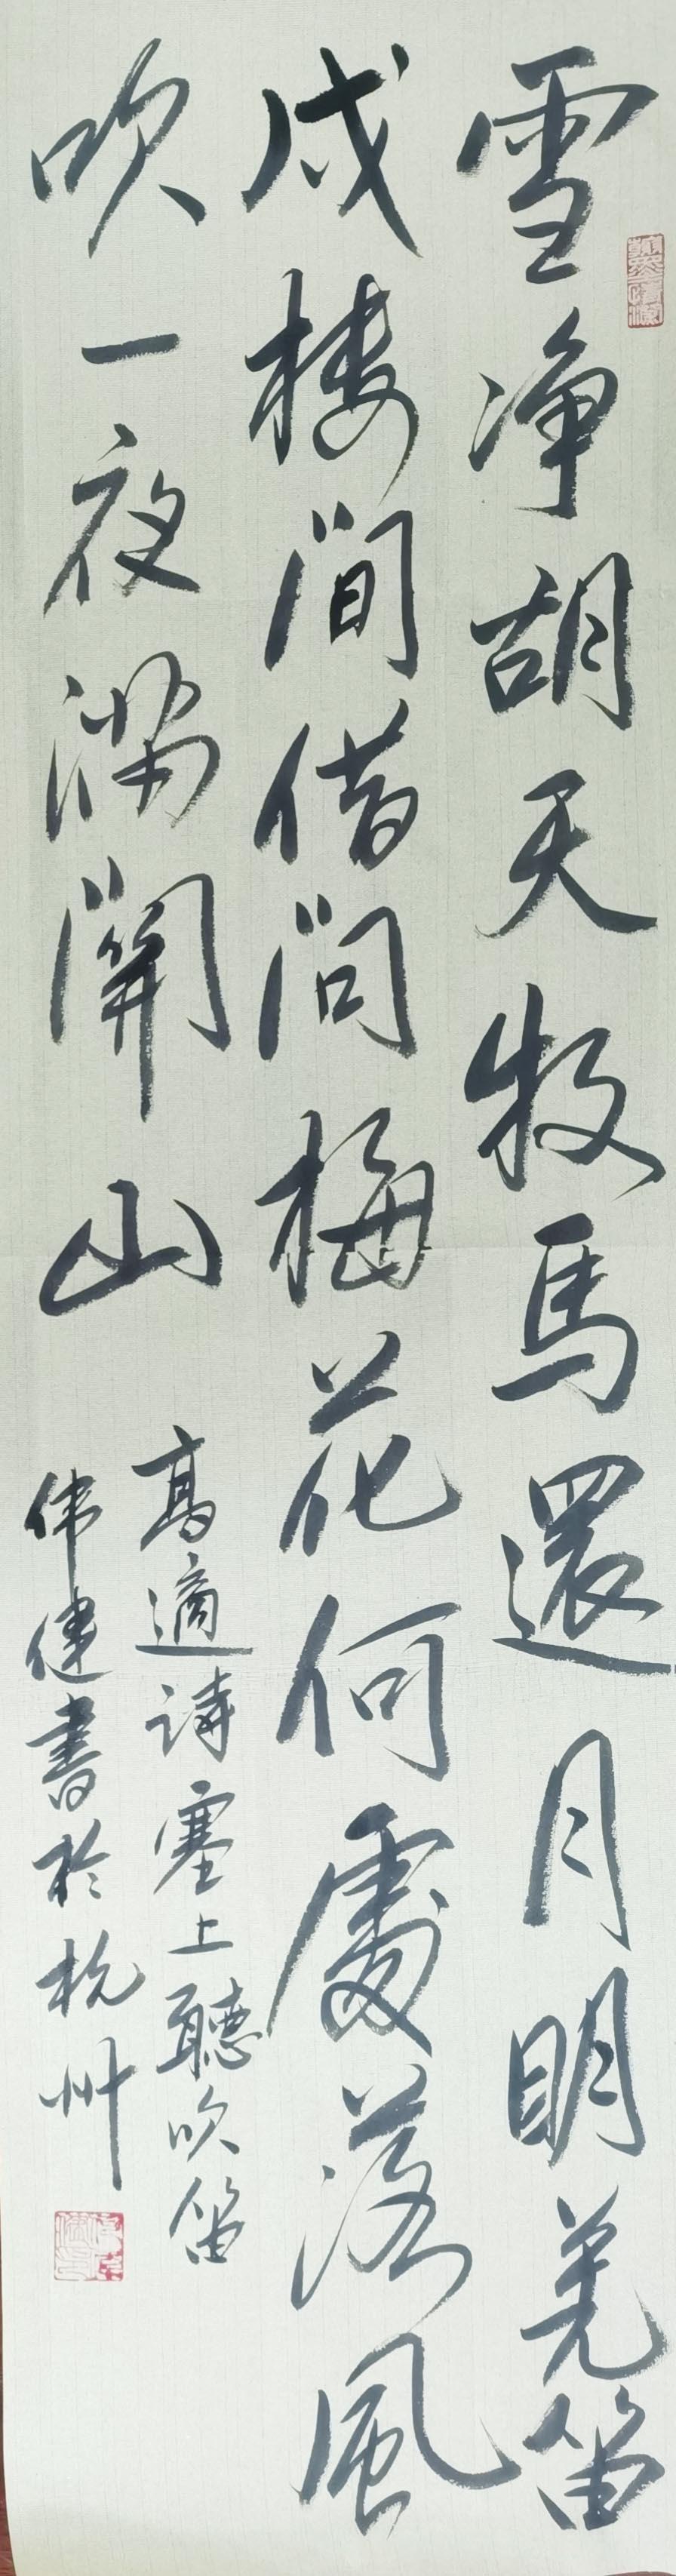 雪净胡天牧馬還月明羌笛
戍楼間借问梅花何處落風
吹一夜滿関山
高適诗塞上聽吹笛
伟健書於杭州